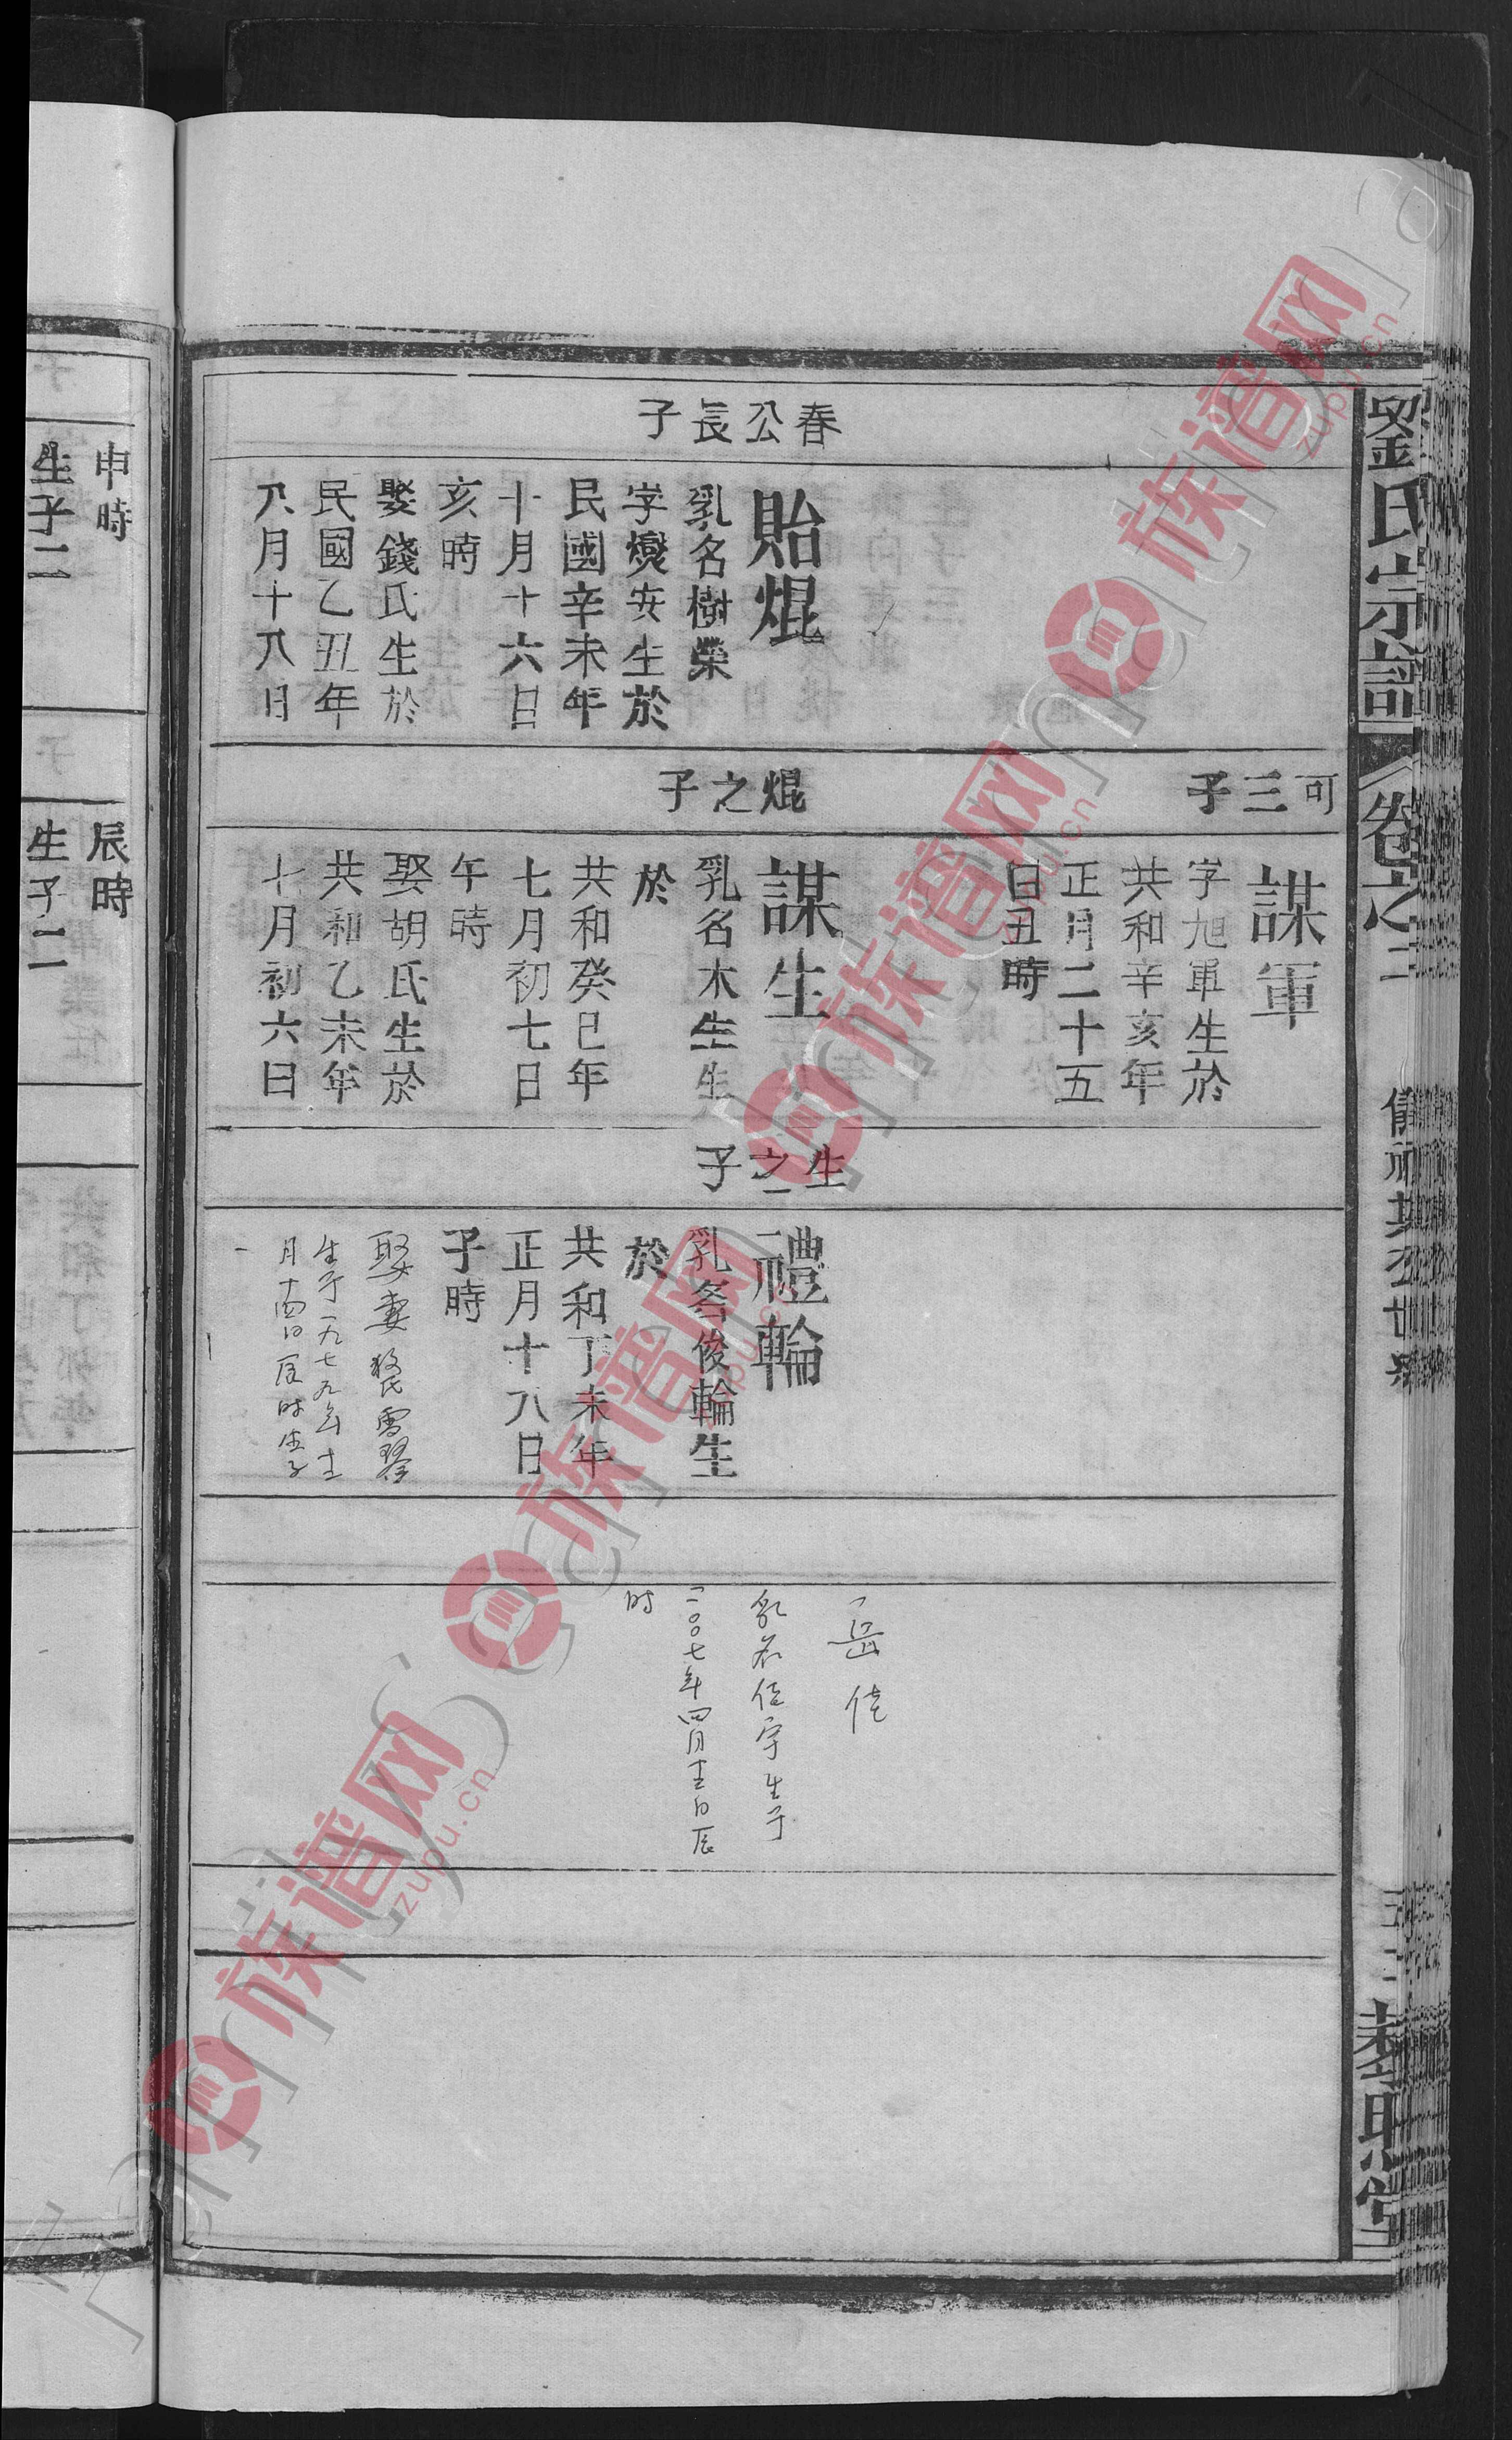 劉氏宗譜
卷之二
春公長子
貽焜
乳名樹榮
字爕安生於
民國辛未年
十月十六日
亥時
娶錢氏生於
民國乙丑年
八月十八日
可三子
謀軍
字旭軍生於
共和辛亥年
正月二十五
日丑時
焜之子
謀生
乳名木生生
於
共和癸巳年
七月初七日
午時
娶胡氏生於
共和乙未年
十月初六日
生之子
禮輪
乳名俊輪生
於
共和丁未年
正月十八日
子時
娶妻
生于一九七九年
月十四日辰时生子
岳佳
乳名佳宇生于
二〇〇七年四月
日辰
时
申時
生子二
辰時
生子二
族谱网
zupu.cn
族谱网
zupu.cn
族谱网
zupu.cn
族谱网
zupu.cn